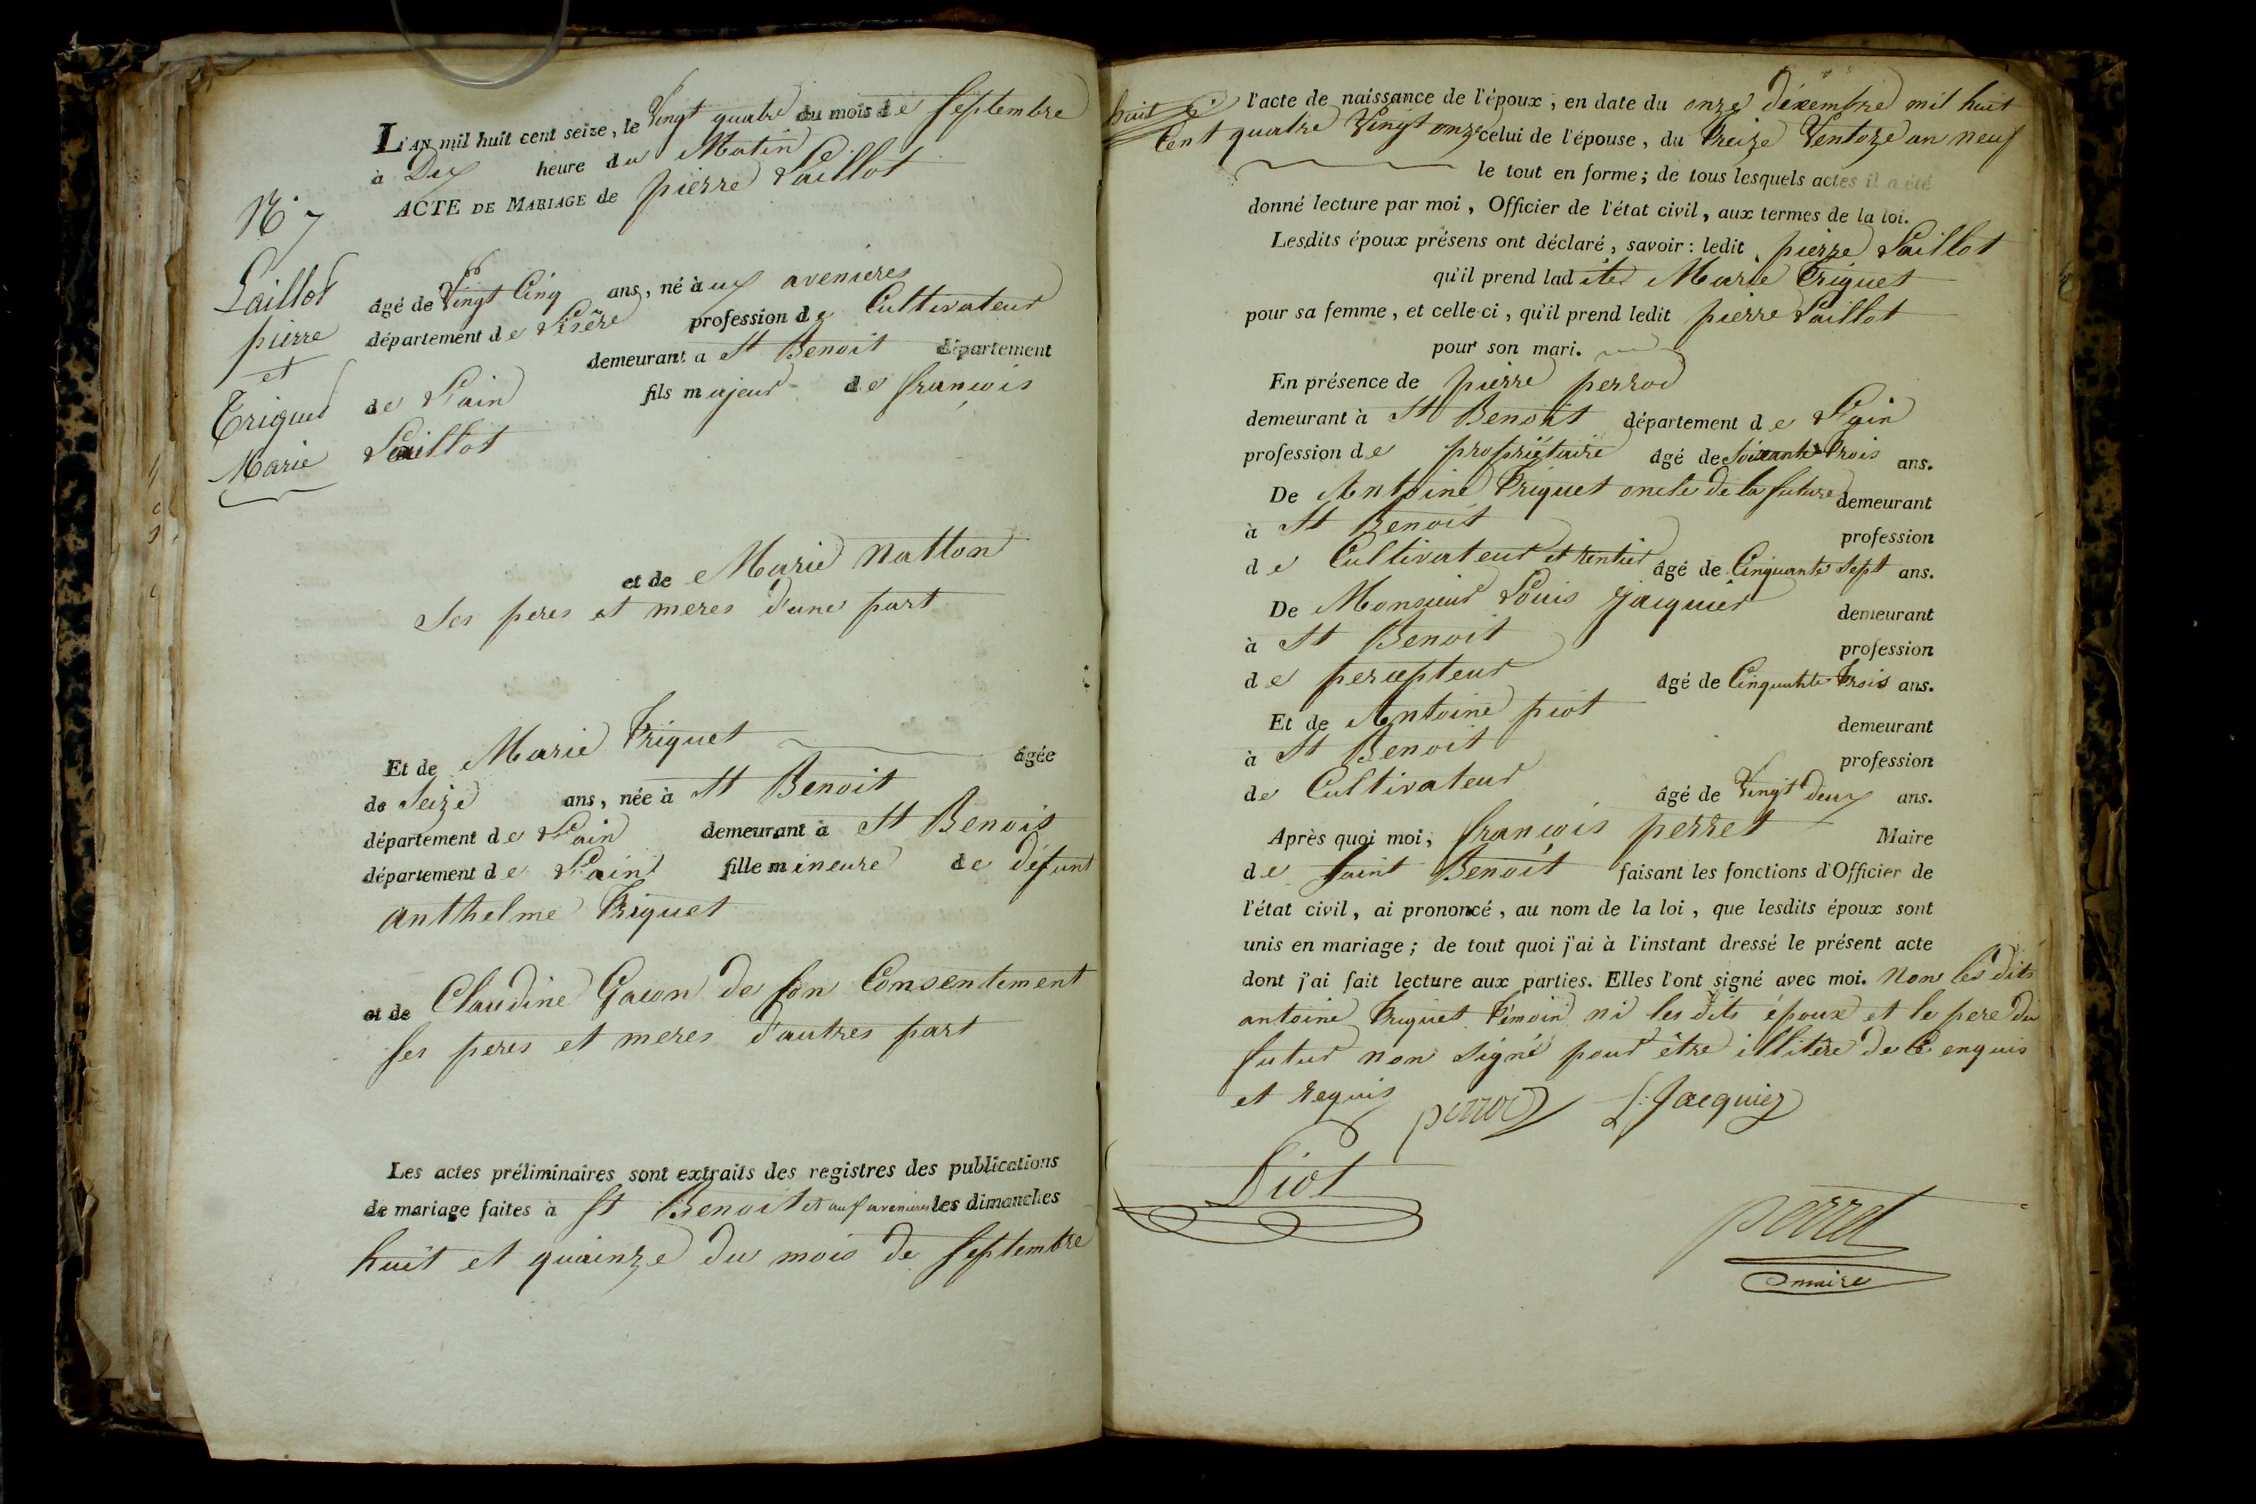 L'AN mil huit cent seize, le Vingt quatre du mois de Septembre
à Dix heure du Matin
ACTE DE MARIAGE de pierre Laillot
N.° 7
Laillot
pierre
et
Triquet
Marie
âgé de Vingt Cinq ans, né à ux avenieres
département de L'isère profession de Cultivateur
demeurant a St Benoit département
de L'ain fils majeur de françois
Laillot
et de Marie Natton
Ses peres et meres d'une part
Et de Marie Triquet âgée
de Seize ans, née à St Benoit
département de L'ain demeurant à St Benois
département de L'ain fille mineure de défunt
anthelme Triquet
et de Claudine Gacon de son Consentement
ses peres et meres d'autres part
Les actes préliminaires sont extraits des registres des publications
de mariage faites à St Benoit et aux avenieres les dimanches
huit et quainze du mois de Septembre
l'acte de naissance de l'époux, en date du onze déxembre mil huit
Cent quatre Vingt onze celui de l'épouse, du Treize Ventoze an neuf
le tout en forme; de tous lesquels actes il a été
donné lecture par moi, Officier de l'état civil, aux termes de la loi.
Lesdits époux présens ont déclaré, savoir: ledit pierre Laillot
qu'il prend ladite Marie Triquet
pour sa femme, et celle-ci, qu'il prend ledit pierre Laillot
pour son mari.
En présence de pierre perrod
demeurant à St Benoit département de L'ain
profession de propriétaire âgé de Soixante Trois ans.
De Antoine Triquet oncle de la future demeurant
à St Benoit profession
de Cultivateur et Rentier âgé de Cinquante Sept ans.
De Monsieur Louis Jacquier demeurant
à St Benoit profession
de percepteur âgé de Cinquante Trois ans.
Et de Antoine piot demeurant
à St Benoit profession
de Cultivateur âgé de Vingt deux ans.
Après quoi moi, françois perret Maire
de Saint Benoit faisant les fonctions d'Officier de
l'état civil, ai prononcé, au nom de la loi, que lesdits époux sont
unis en mariage; de tout quoi j'ai à l'instant dressé le présent acte
dont j'ai fait lecture aux parties. Elles l'ont signé avec moi. Non les dits
antoine Triquet Témoin ni les dits époux et le pere du
futur non Signé pour être illitère de ce enquis
et Requis
perrod L. Jacquier
Piot
perret
maire